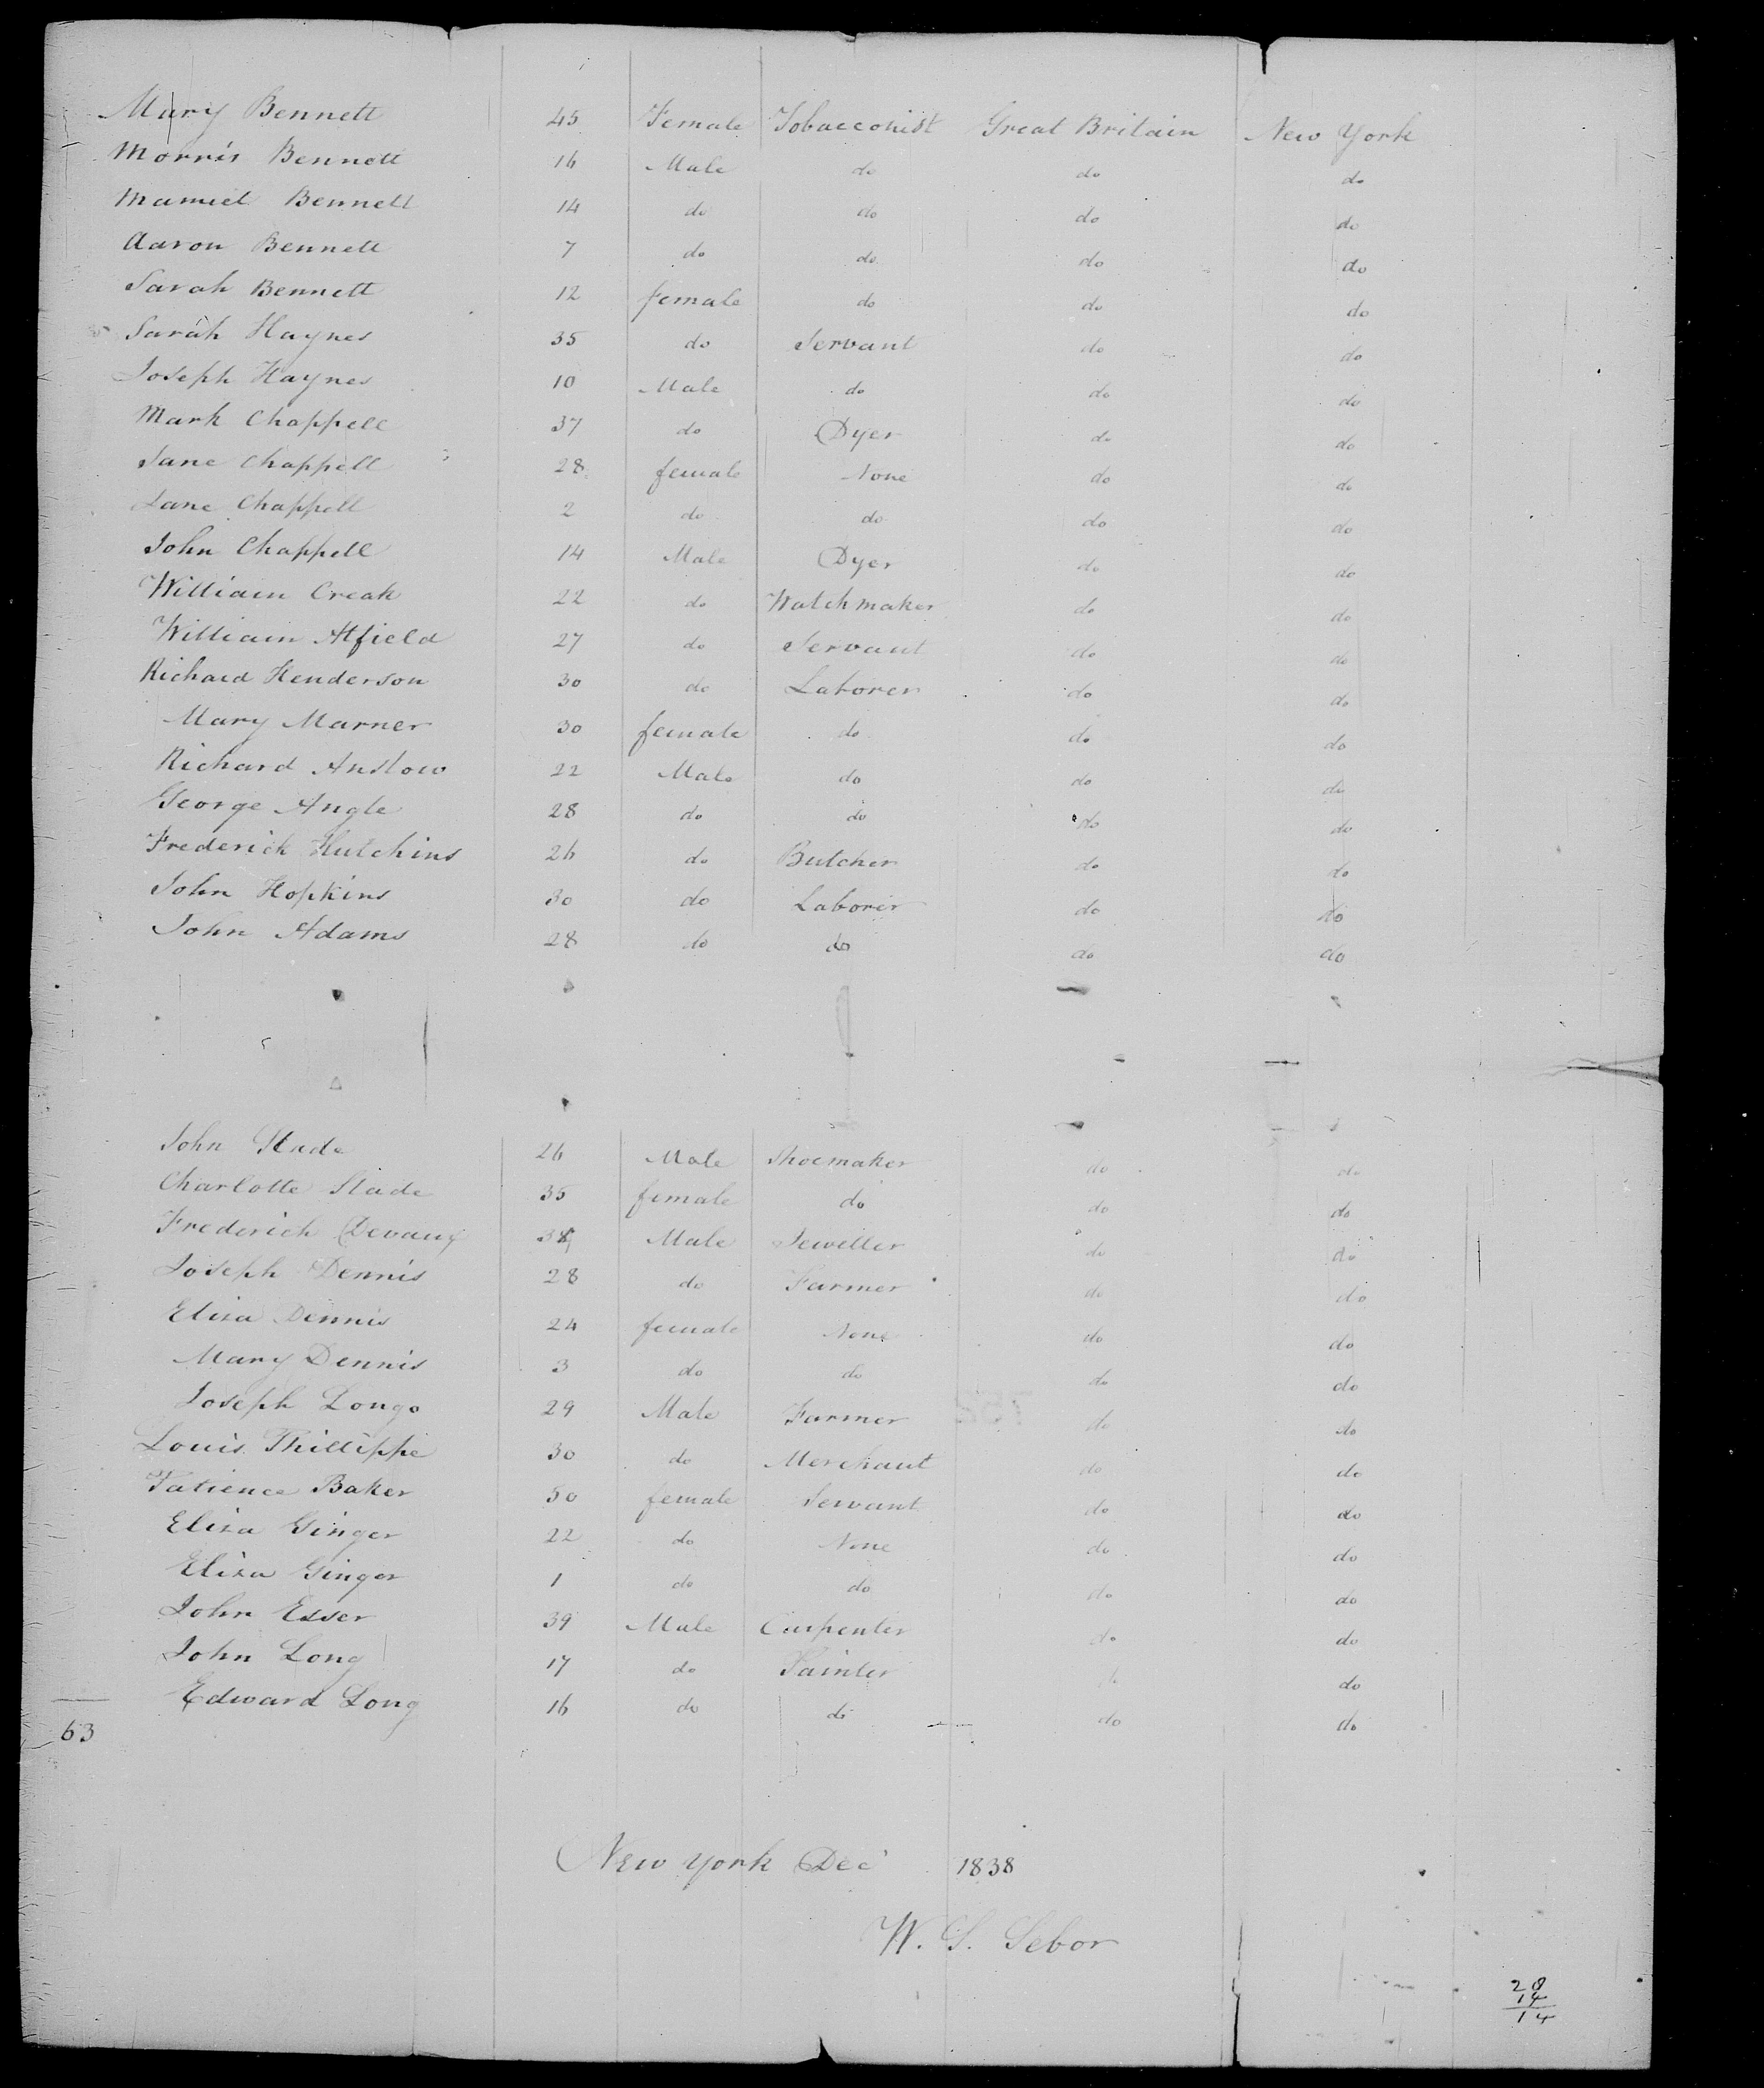 Mary Bennett 45 Female Tobacconist Great Britain New York
Morris Bennett 16 Male do do do
Mamiel Bennett 14 do do do do
Aaron Bennett 7 do do do do
Sarah Bennett 12 female do do do
Sarah Haynes 35 do Servant do do
Joseph Haynes 10 Male do do do
Mark Chappell 37 do Dyer do do
Jane Chappell 28 female None do do
Jane Chappell 2 do do do do
John Chappell 14 Male Dyer do do
William Creak 22 do Watchmaker do do
William Atfield 27 do Servant do do
Richard Henderson 30 do Laborer do do
Mary Marner 30 female do do do
Richard Anslow 22 Male do do do
George Angle 28 do do do do
Frederick Hutchins 26 do Butcher do do
John Hopkins 30 do Laborer do do
John Adams 28 do do do do
John Slade 26 Male Shoemaker do do
Charlotte Slade 35 female do do do
Frederick Male Jeweller do do
Joseph Dennis 28 do Farmer do do
Eliza Dennis 24 female None do do
Mary Dennis 3 do do do do
Joseph Longo 29 Male Farmer do do
Louis Phillippe 30 do Merchant do do
Patience Baker 50 female Servant do do
Eliza Ginger 22 do None do do
Eliza Ginger 1 do do do do
John Esser 39 Male Carpenter do do
John Long 17 do Painter do
Edward Long 16 do do do do
63
New York Dec 1838
W. S. Sebor
28
14
14